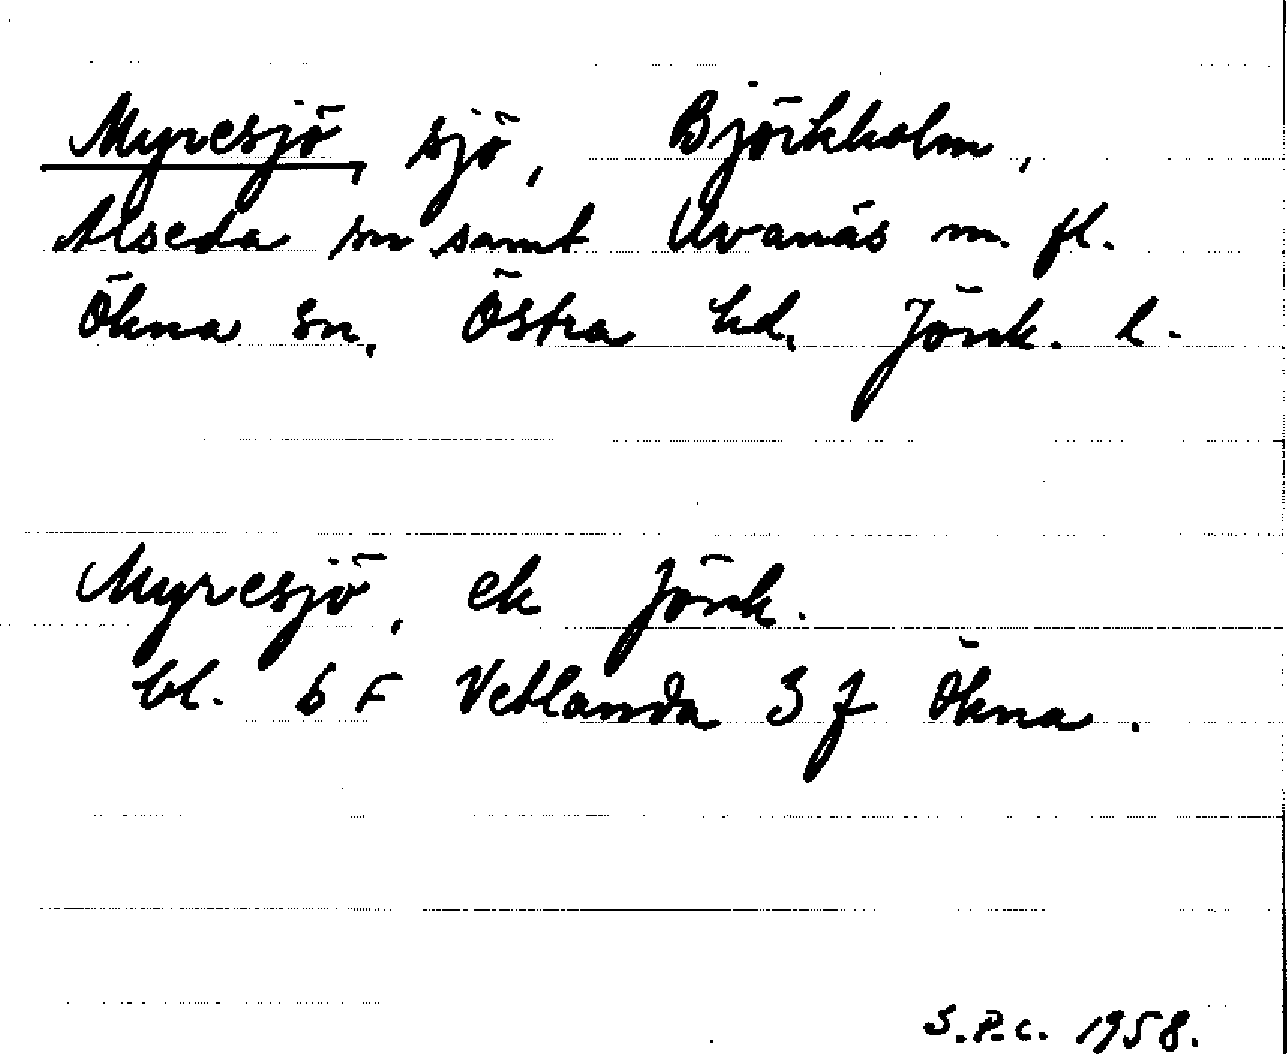 Myresjö, sjö, Björkholm,
Alseda sn samt Uvanäs m. fl.
Ökna sn, Östra hd, Jönk. l.
Myresjö, ek Jönk.
bl. 6 F Vetlanda 3 f Ökna.
S.P.C. 1958.